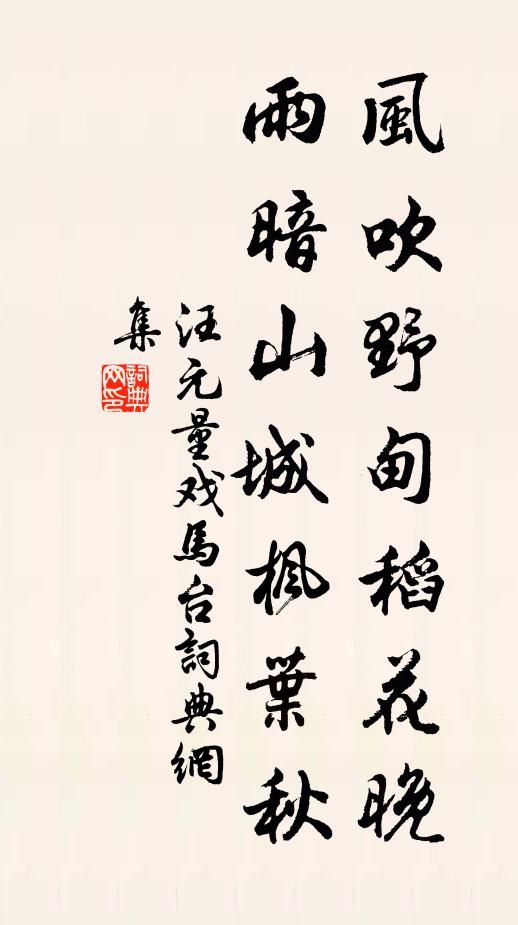 風吹野甸稻花晚
雨暗山城楓葉秋
汪元量戏馬台詞典網
集
詞典网印